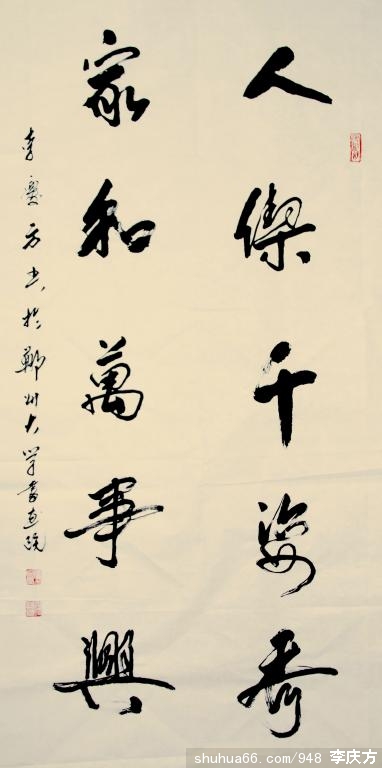 人傑千姿秀
家和萬事興
李慶方書於鄭州大學書畫院
shuhua66.com/948 李庆方